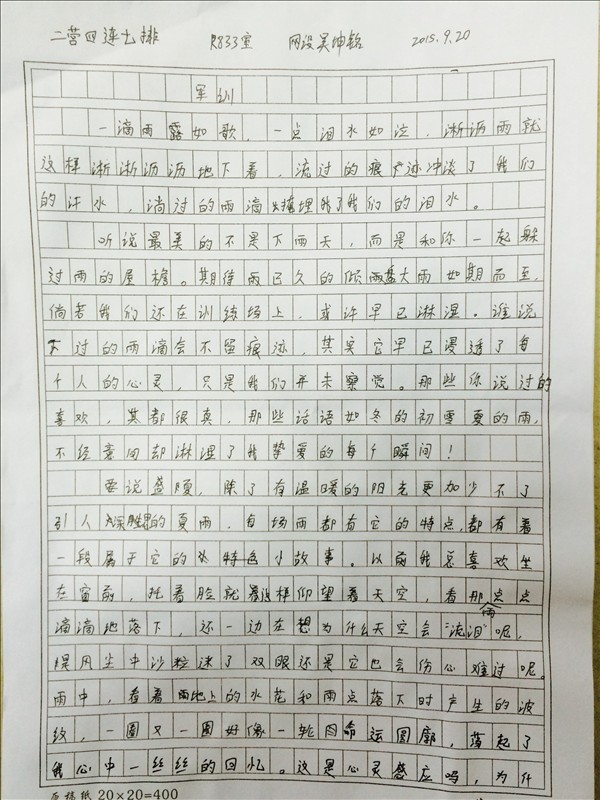 二营四连七排 R833室 网设吴坤铭 2015.9.20
军训
一滴雨露如歌，一点泪水如泣，淅沥雨就
这样淅淅沥沥地下着，流过的痕迹冲淡了我们
的汗水，淌过的雨滴掩埋了我们的泪水。
听说最美的不是下雨天，而是和你一起躲
过雨的屋檐。期待雨已久的倾盆大雨如期而至，
倘若我们还在训练场上，或许早已淋湿。谁说
下过的雨滴会不留痕迹，其实它早已浸透了每
个人的心灵，只是我们并未察觉。那些你说过的
喜欢，其都很真，那些话语如冬的初雪夏的雨，
不经意间却淋湿了我挚爱的每个瞬间！
要说盛夏，除了有温暖的阳光更加少不了
引人的夏雨，每场雨都有它的特点，都有着
一段属于它的特色小故事。以前我总喜欢坐
在窗前，托着脸就这样仰望着天空，看那雨点点
滴滴地落下，还一边在想为什么天空会“流泪”呢，
是风尘中沙粒迷了双眼还是它也会伤心难过呢。
雨中，看着雨地上的水花和雨点落下时产生的波
纹，一圈又一圈好像一轮图命运圆廓，荡起了
我心中一丝丝的回忆。这是心灵感应吗，为什
原稿纸 20×20=400